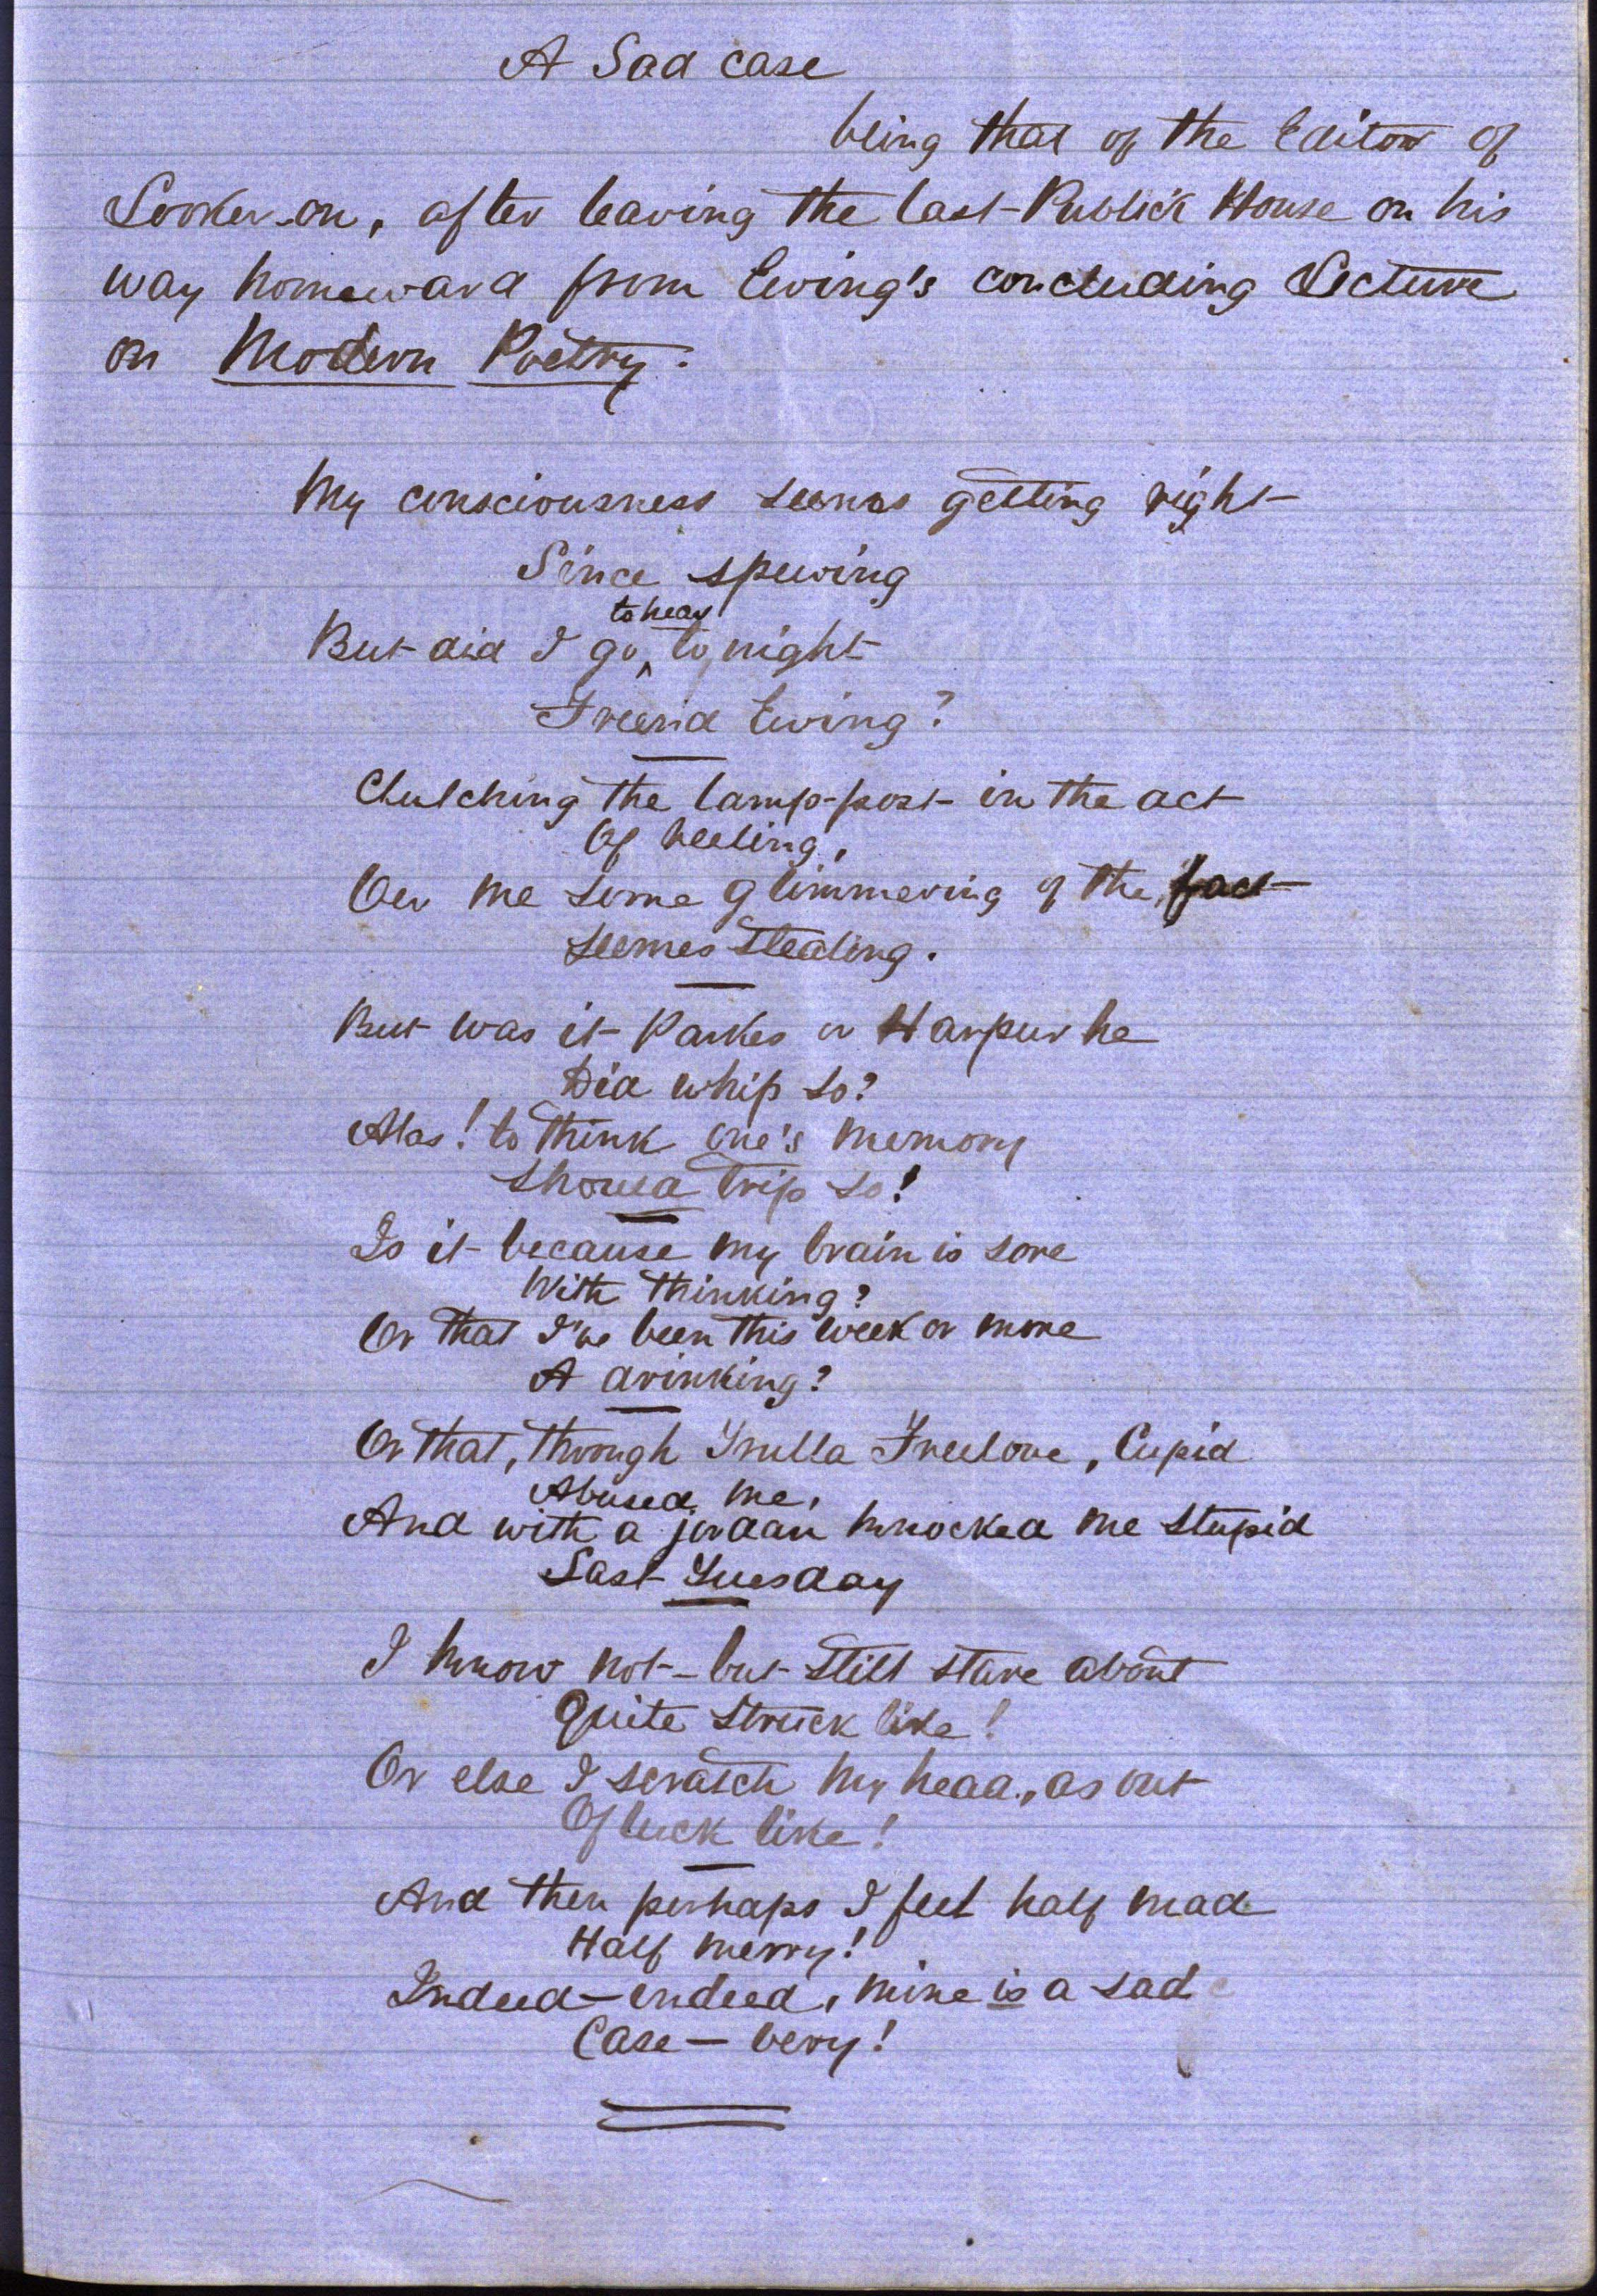 A Sad case
being that of the Editor of
Looker-on, after leaving the last Publick House on his
way homeward from Ewing's concluding Lecture
on Modern Poetry.
My consciousness seems getting right
Since spewing
to hear
But did I go to night
Friend Ewing?
Clutching the lamp-post in the act
Of heeling,
Oer me some glimmering of the fact
Seemes stealing.
But was it Parkes or Harpur he
Did whip so?
Alas! to think one's memory
Should trip so!
Is it because my brain is sore
With thinking?
Or that I've been this week or more
A drinking?
Or that, through Trulla Freelove, Cupid
Abused me,
And with a jordan knocked me stupid
Last Tuesday
I know not – but still stare about
Quite struck like!
Or else I scratch my head, as out
Of luck like!
And then perhaps I feel half mad
Half merry!
Indeed – indeed, mine is a sad
Case – very!